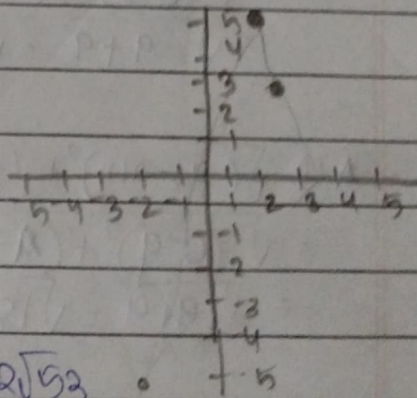 5
4
3
2
1
5 -4 -3 -2 -1 1 2 3 4 5
-1
2
-3
-4
-5
2√52